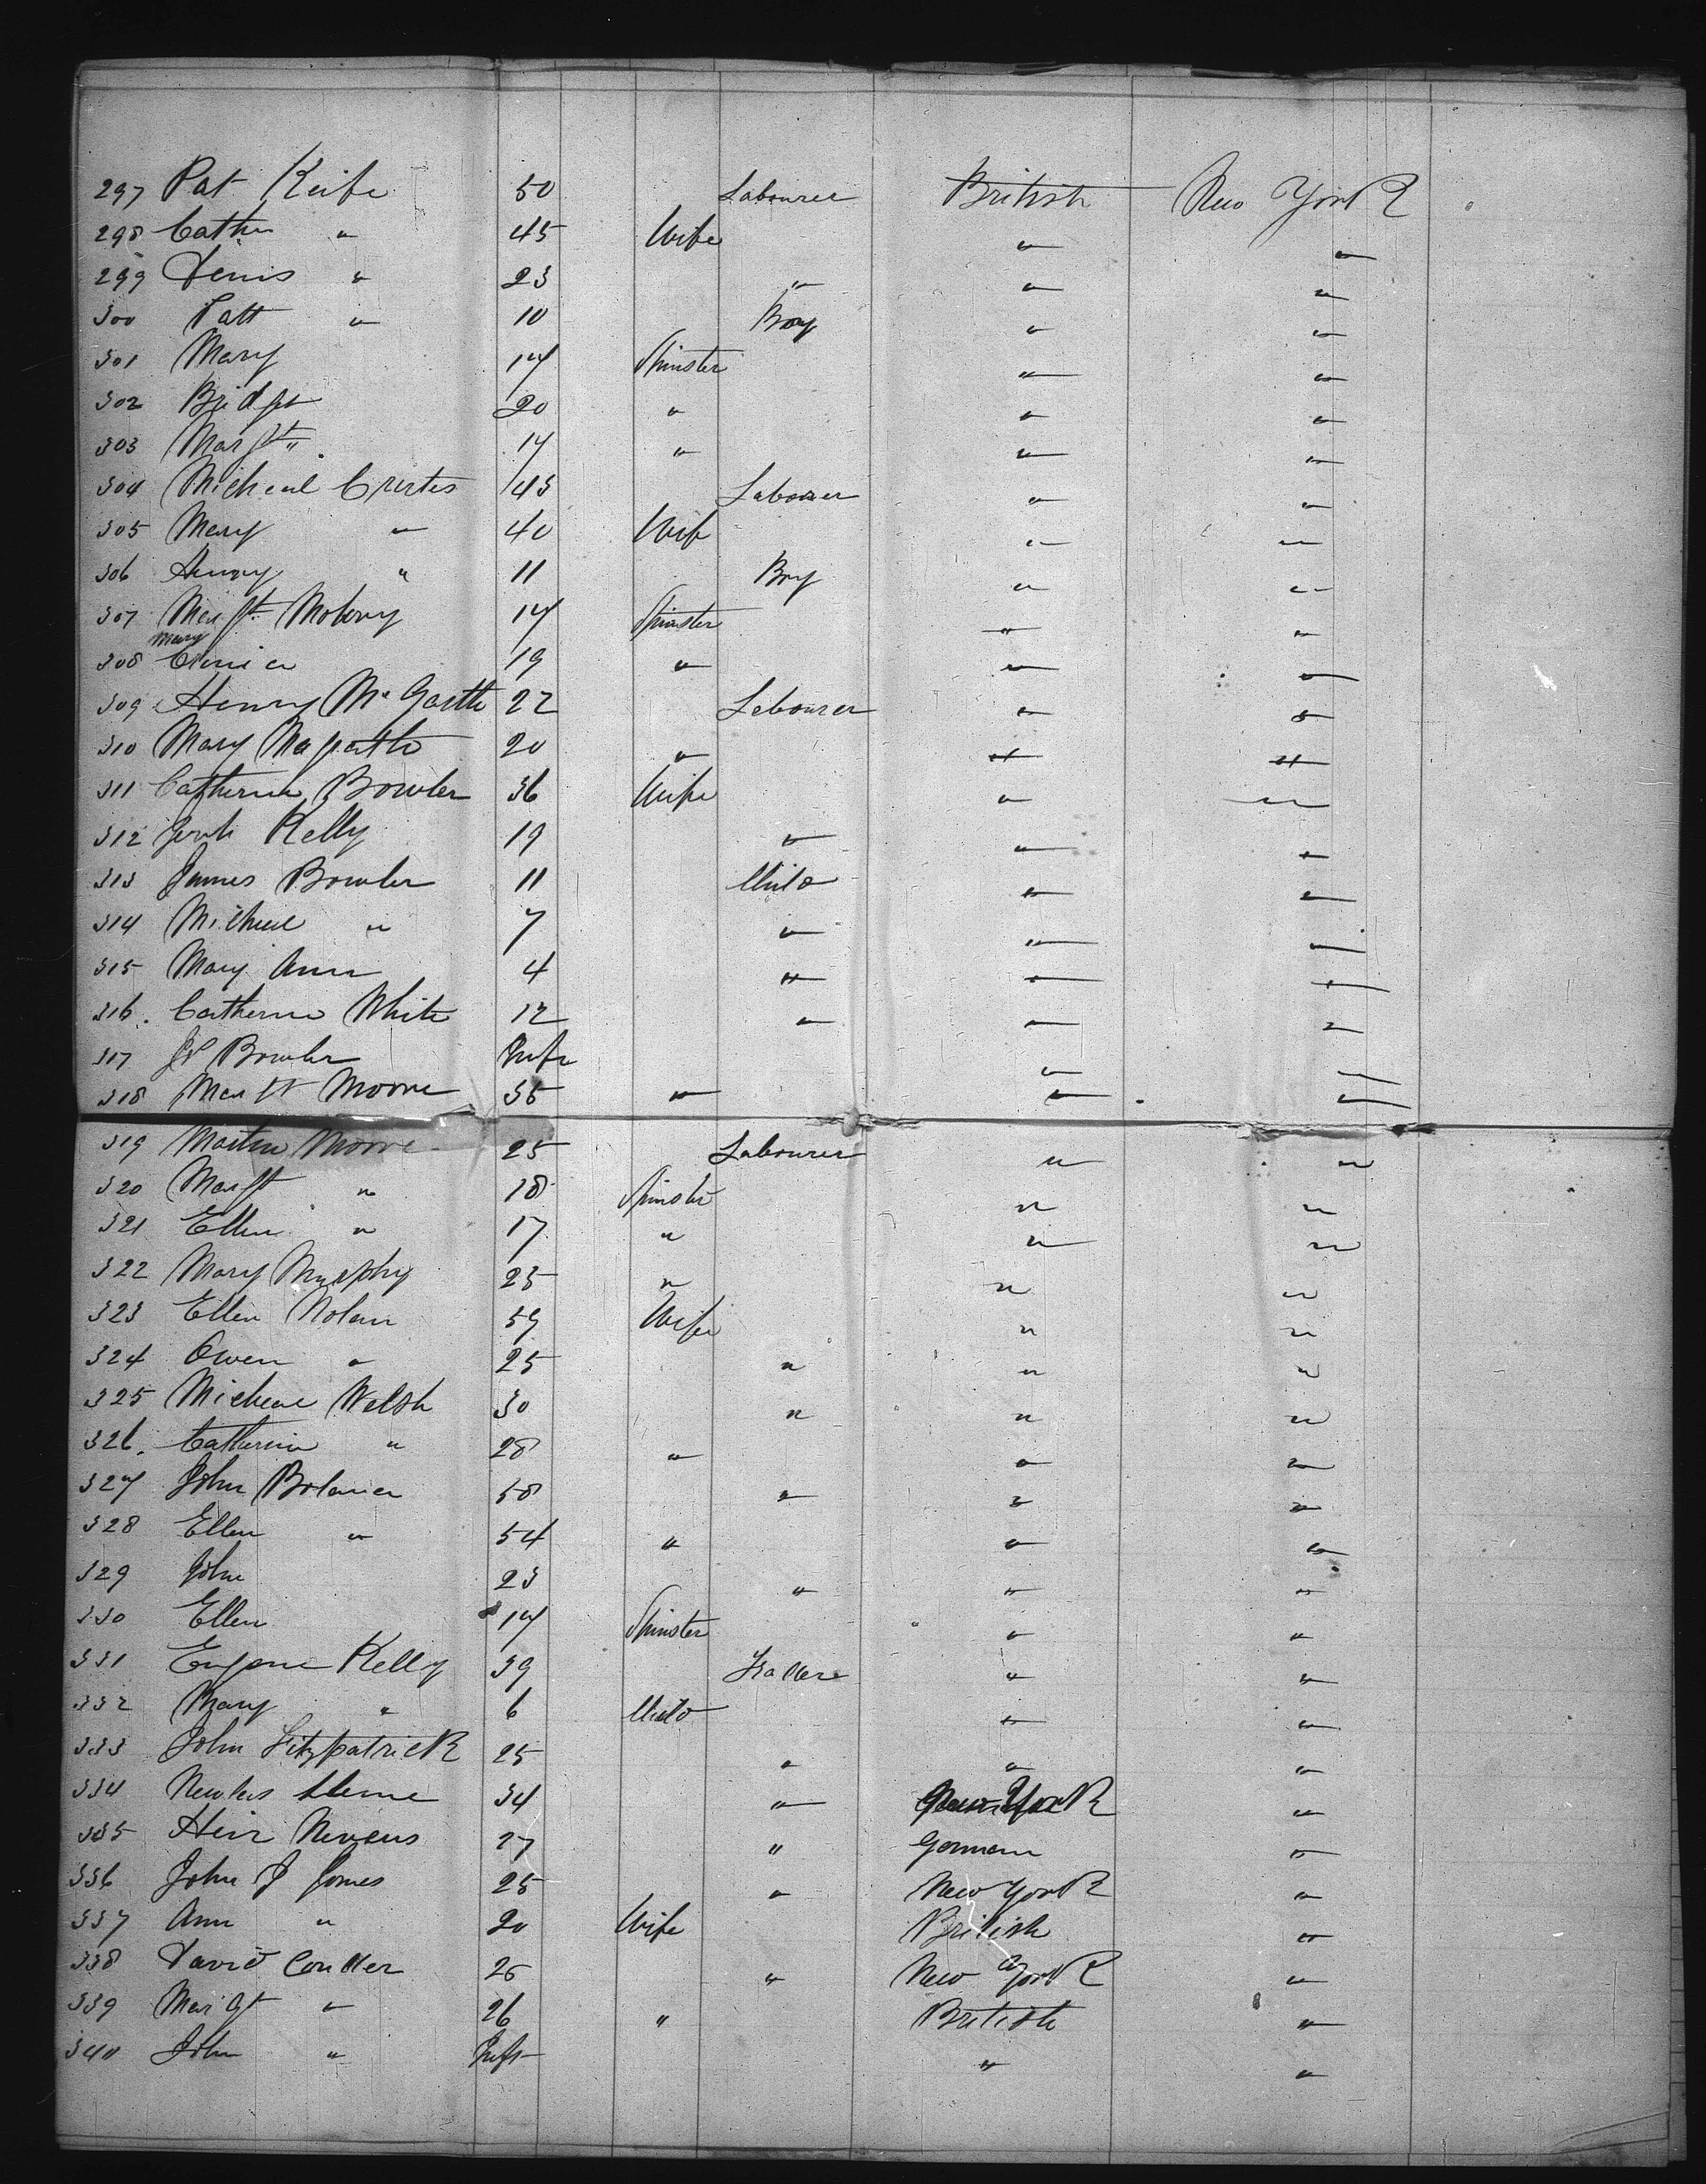 297 Pat Keife 50 Labourer British New York
298 Cathn " 45 Wife " "
299 Denis " 23 " " "
300 Patt " 10 Boy " "
301 Mary 17 Spinster " "
302 Bridget 20 " " "
303 Margt " 17 " " "
304 Micheal 43 Labourer " "
305 Mary " 40 Wife " "
306 Henry " 11 Boy " "
307 Margt 17 Spinster " "
Mary
308 19 " " "
309 Henry Mc Garth 22 Labourer " "
310 Mary Magrath 20 " " "
311 Catherine Bowler 36 Wife " "
312 Kelly 19 " " "
313 James Bowler 11 Child " "
314 Micheal " 7 " " "
315 Mary Ann 4 " " "
316. Catherine White 12 " " "
317 Bowler Inft " "
318 Margt Moore 35 " " "
319 Martin Moore 25 Labourer " "
320 Margt " 18 Spinster " "
321 Ellen " 17 " " "
322 Mary Murphy 25 " " "
323 Ellen Nolan 59 Wife " "
324 Owen " 25 " " "
325 Micheal Welsh 30 " " "
326. Catherine " 28 " " "
327 John 58 " " "
328 Ellen " 54 " " "
329 John 23 " " "
330 Ellen 17 Spinster " "
331 Eugene Kelly 39 " "
332 Mary " 6 Child " "
333 John Fitzpatrick 25 " " "
334 34 " New York "
335 27 " German "
336 John J Jones 25 " New York "
337 Ann " 20 Wife British "
338 David 26 " New York "
339 Margt " 26 " British "
340 John " Inft " "